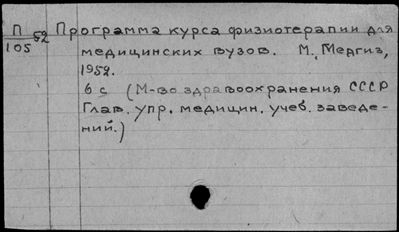 П 52 Программа курса физиотерапии для
105 медицинских вузов. М., Медгиз,
1952.
6 с (М-во здравоохранения СССР
Глав. упр. медицин. учеб. заведе-
ний.)